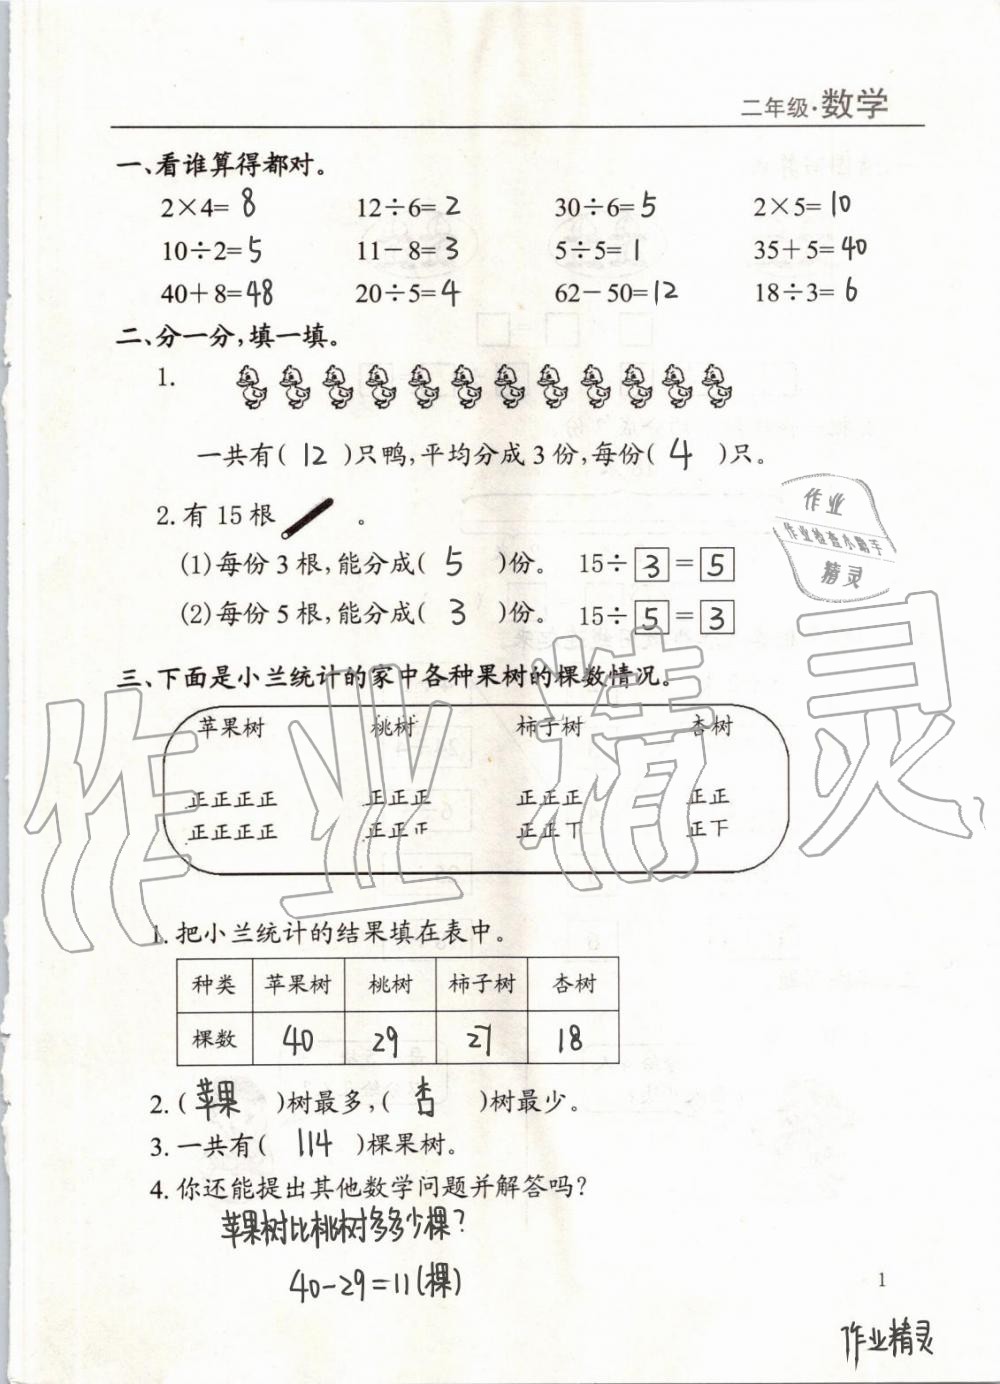 二年级·数学
一、看谁算得都对。
2×4=8 12÷6=2 30÷6=5 2×5=10
10÷2=5 11－8=3 5÷5=1 35＋5=40
40＋8=48 20÷5=4 62－50=12 18÷3=6
二、分一分,填一填。
1.
一共有( 12 )只鸭,平均分成3份,每份( 4 )只。
2.有15根 。
(1)每份3根,能分成( 5 )份。 15÷3=5
(2)每份5根,能分成( 3 )份。 15÷5=3
三、下面是小兰统计的家中各种果树的棵数情况。
苹果树 桃树 柿子树 杏树
正正正正 正正正 正正正 正正
正正正正 正正𤴓 正正丅 正下
1.把小兰统计的结果填在表中。
种类 苹果树 桃树 柿子树 杏树
棵数 40 29 27 18
2.( 苹果 )树最多,( 杏 )树最少。
3.一共有( 114 )棵果树。
4.你还能提出其他数学问题并解答吗?
苹果树比桃树多多少棵?
40-29=11(棵)
1
作业精灵
作业
作业检查小助手
精灵
作业精灵